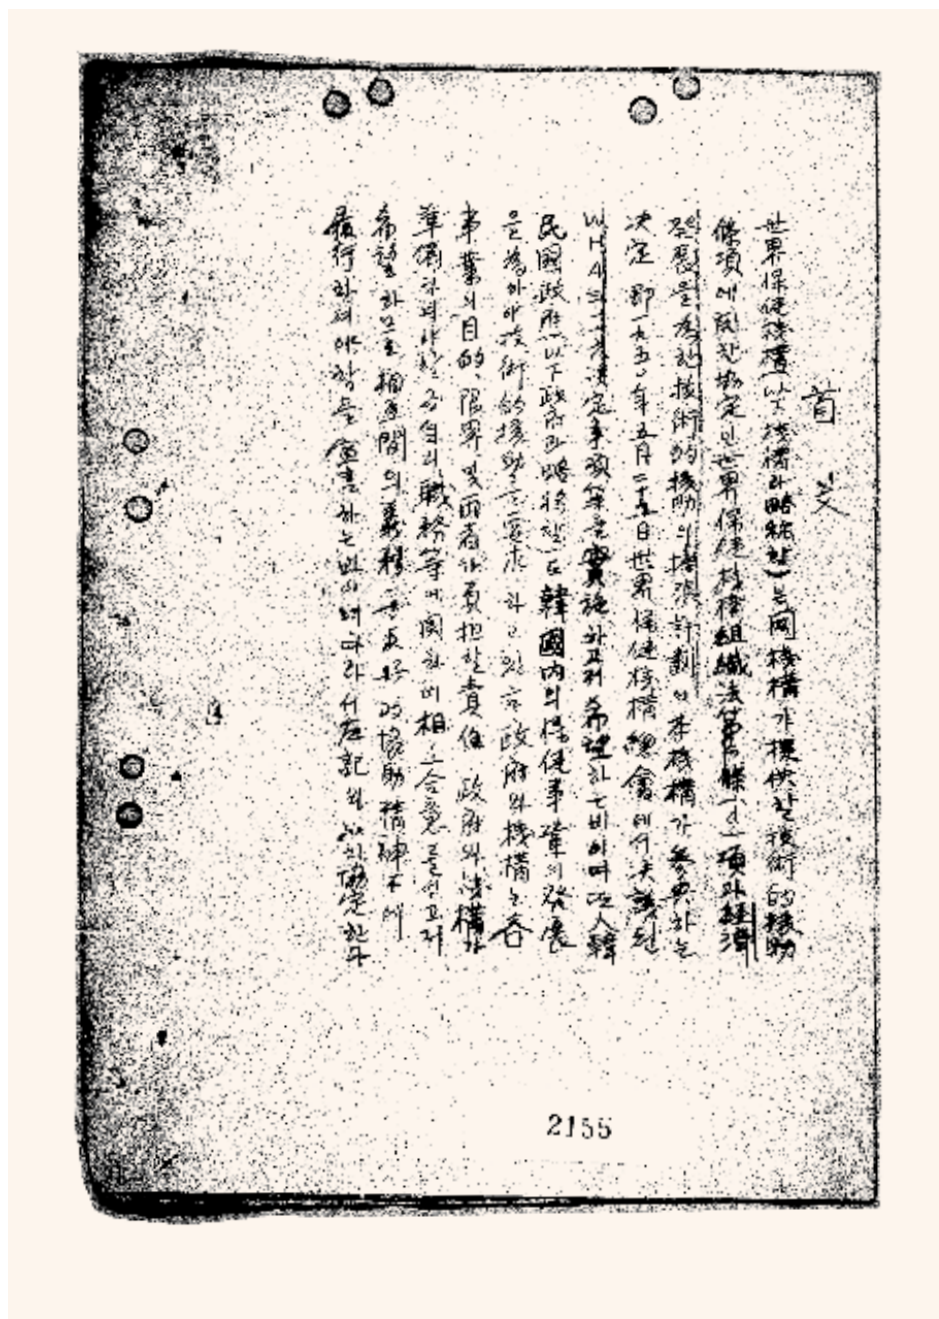 首文
世界保健機構(以下機構라略称함)는同機構가提供할技術的援助
條項에 관한協定인世界保健機構組織法第 條 項과經濟
發展을為한技術的援助의擴張計劃에本機構가參與하는
決定 即一九五〇年五月二十五日世界保健機構總會에서決議된
決定事項等을實施하고저希望하는바이며또大韓
民國政府(以下政府라略称함)도韓國内의保健事業의發展
을為하야技術的援助를要求하고있음 政府와機構는各
事業의目的、限界 및兩者가負担할責任 政府와機構가
準備하여야할 職務等에関하여相互合意를 고저
希望하므로相互間의義務 協助精神下에
履行하여야함을宣言하는바이며따라서左記와如히協定한다
2155